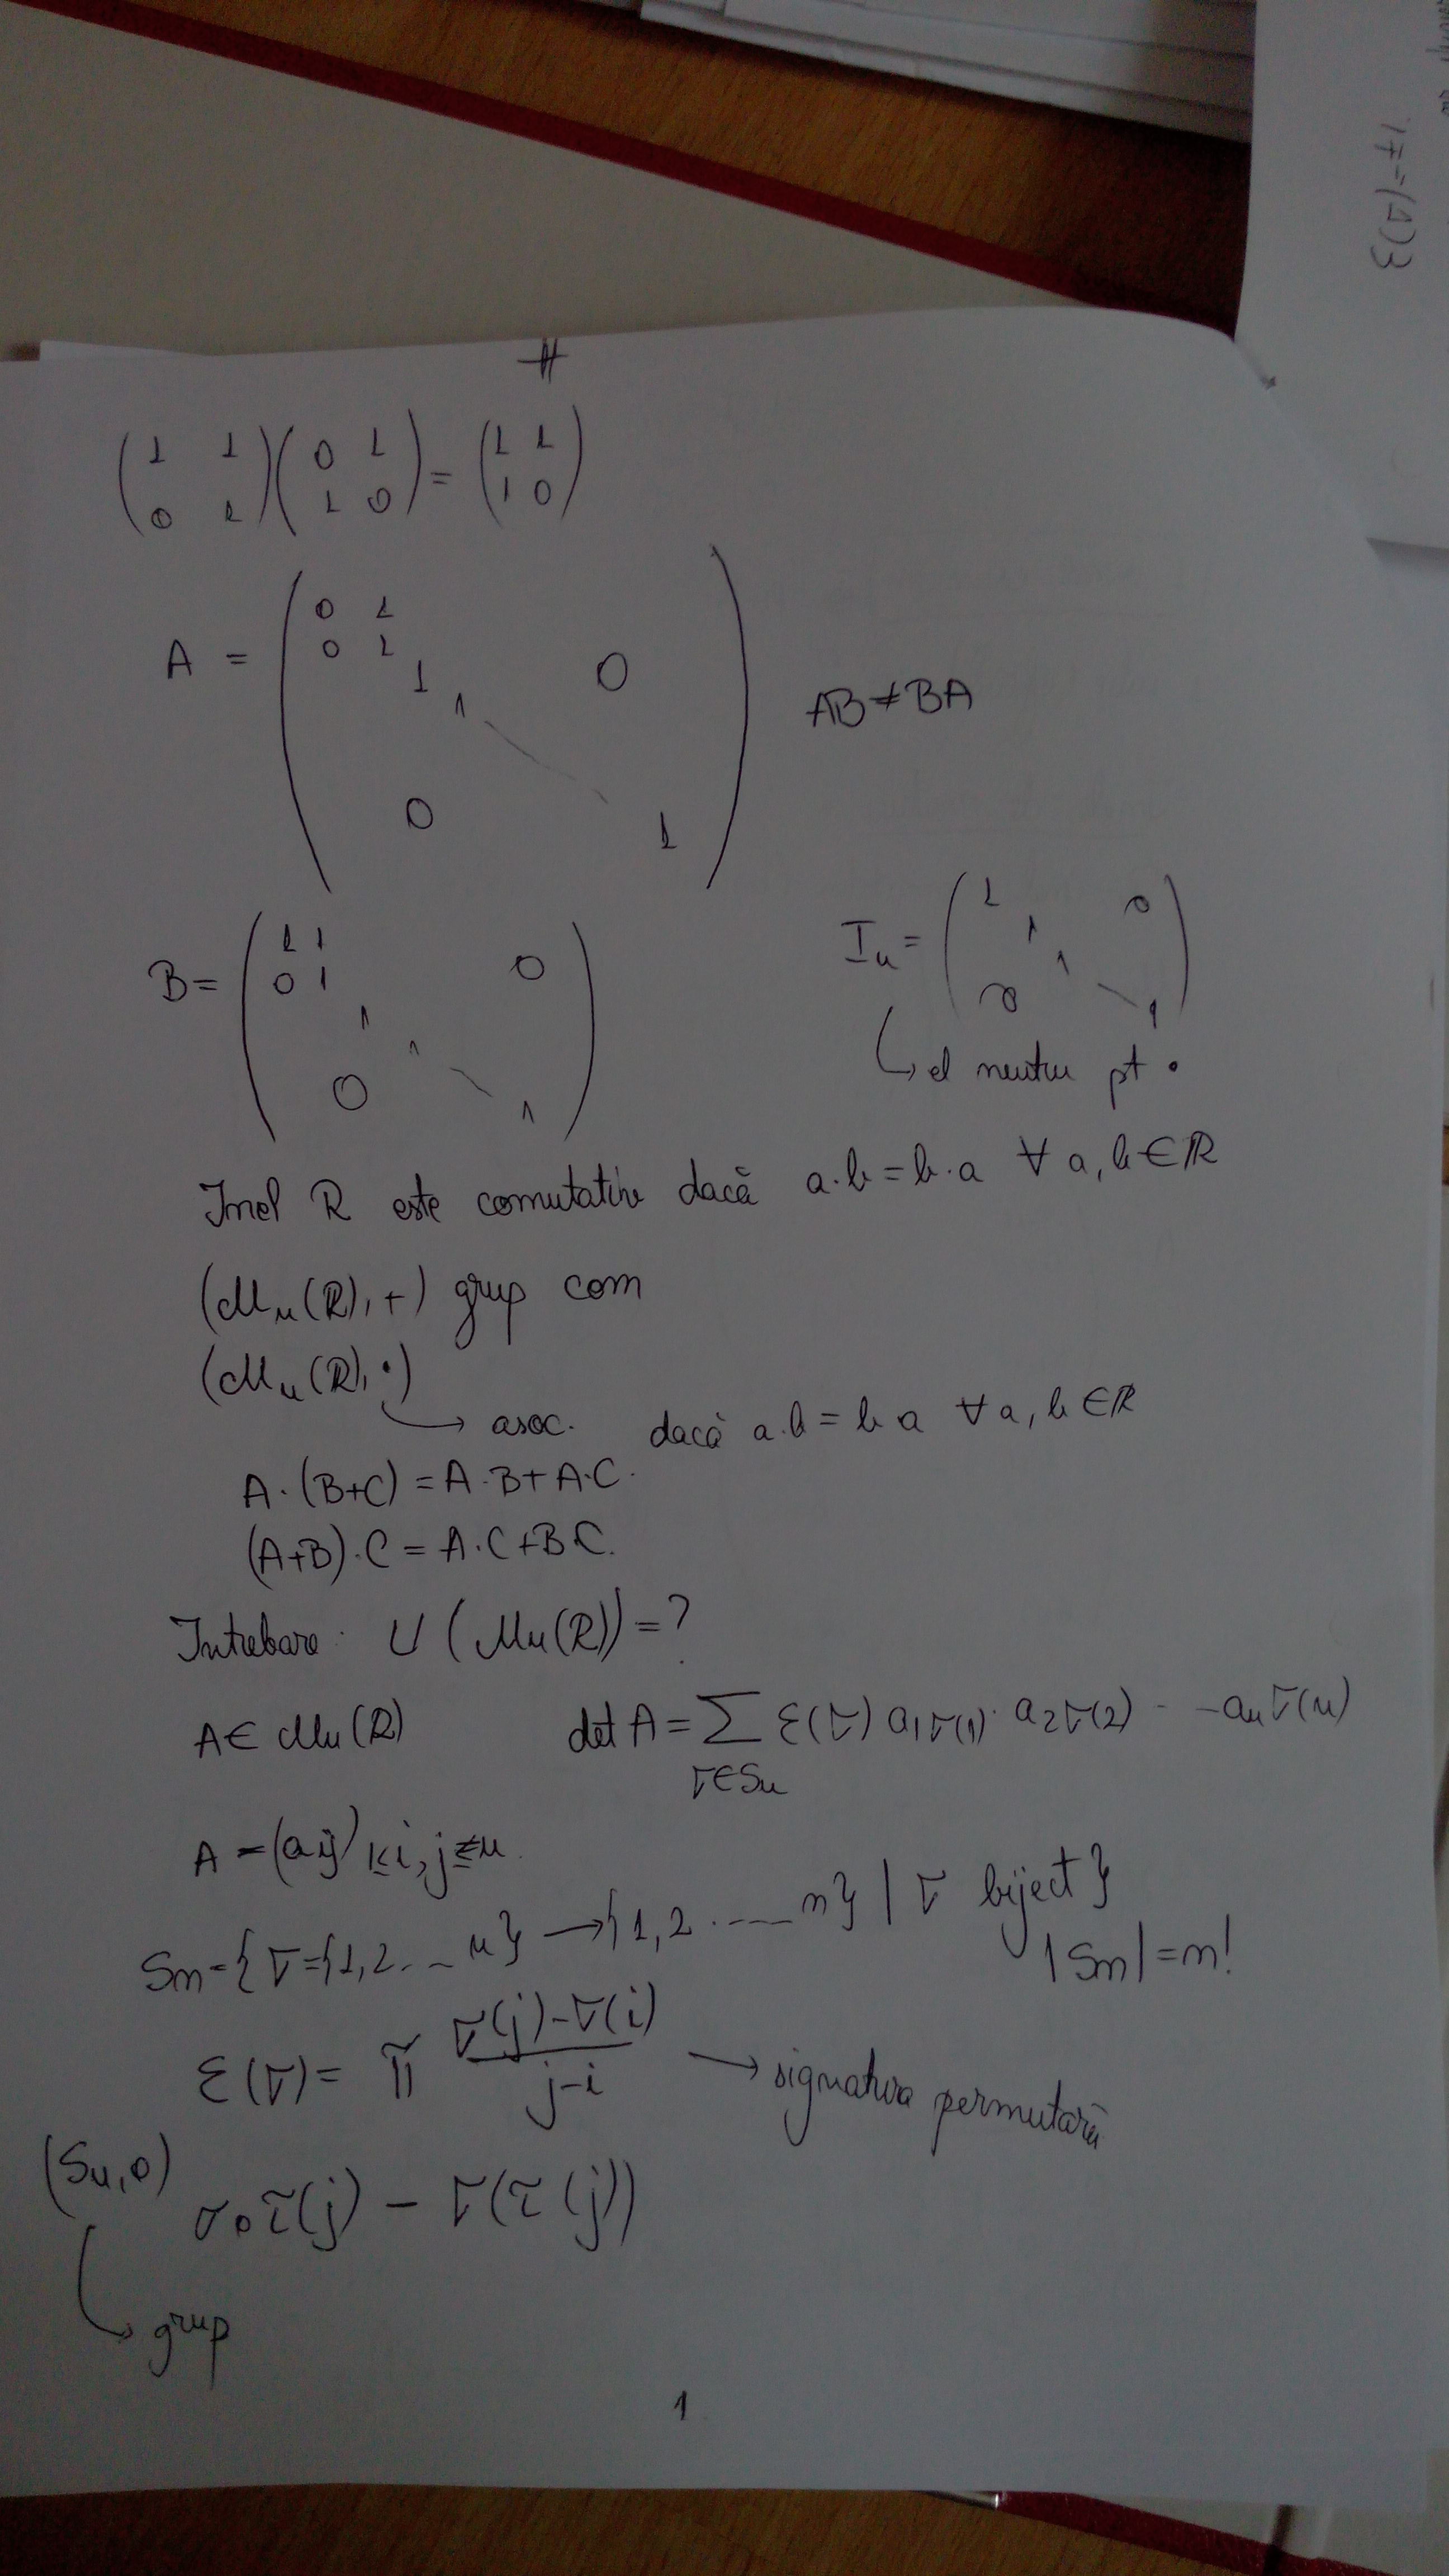 #
( 1 1 ; 0 1 ) ( 0 1 ; 1 0 ) = ( 1 1 ; 1 0 )
A = ( 0 1 ; 0 1 ; 1 ; 1 ; 1 ) 0 0
AB ≠ BA
B = ( 1 1 ; 0 1 ; 1 ; 1 ; 1 ) 0 0
In = ( 1 ; 1 ; 1 ; 1 ) 0 0
↳ el neutru pt •
Inel R este comutativ dacă a·b = b·a ∀ a, b ∈ R
(Mn(R), +) grup com
(Mn(R), ·)
→ asoc. dacă a.b = b a ∀ a, b ∈ R
A·(B+C) = A·B + A·C.
(A+B)·C = A·C + B·C.
Intrebare: U (Mn(R)) = ?
A ∈ Mn(R)
det A = ∑ ε(σ) a1σ(1) · a2σ(2) - - anσ(n)
σ∈Sn
A = (aij) 1≤i, j≤n.
Sn = { σ = {1,2.. _ n} → {1,2 ..__ n} | σ biject }
|Sn| = n!
ε(σ) = π σ(j) - σ(i) / j-i → signatura permutării
(Sn, o)
σ o τ(j) - σ(τ(j))
↳ grup
1
ε(Δ) = 17